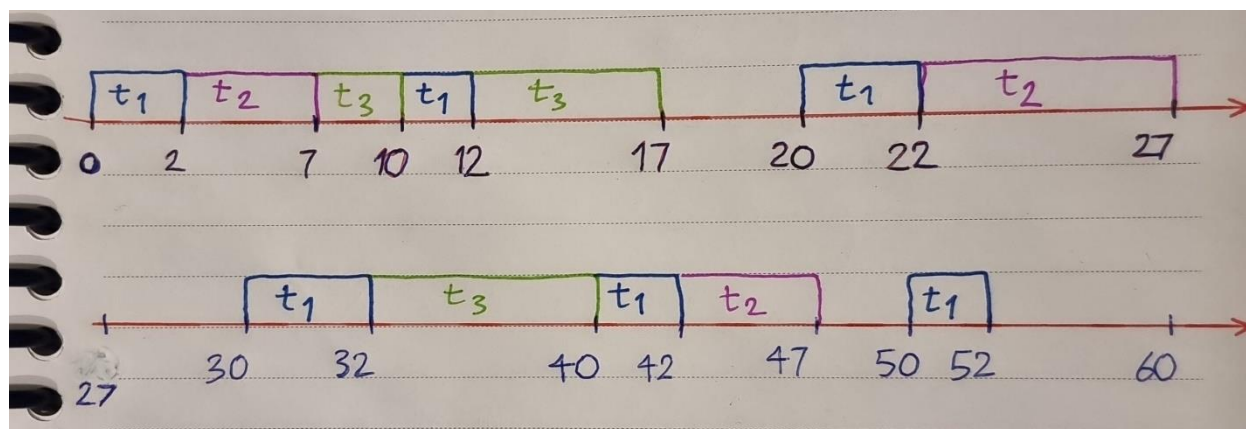 t1 t2 t3 t1 t3 t1 t2
0 2 7 10 12 17 20 22 27
t1 t3 t1 t2 t1
27 30 32 40 42 47 50 52 60